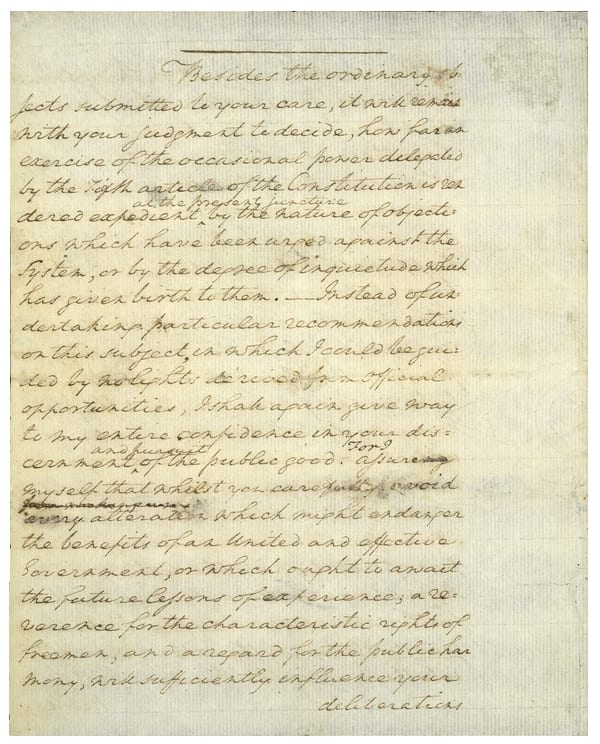 Besides the ordinary ob
jects submitted to your care, it will remain
with your judgment to decide, how far an
exercise of the occasional power delegated
by the Fifth article of the Constitution is ren
at the present juncture
dered expedient by the nature of objecti-
ons which have been urged against the
System, or by the degree of inquietude which
has given birth to them. — Instead of un-
dertaking particular recommendations
on this subject, in which I could be gui-
ded by no lights derived from official
opportunities, I shall again give way
to my entire confidence in your dis-
and pursuit For I
cernment of the public good. assure
myself that whilst you carefully avoid
every alteration which might endanger
the benefits of an United and effective
Government, or which ought to await
the future lessons of experience; a re-
verence for the characteristic rights of
freemen, and a regard for the public har
mony, will sufficiently influence your
deliberations